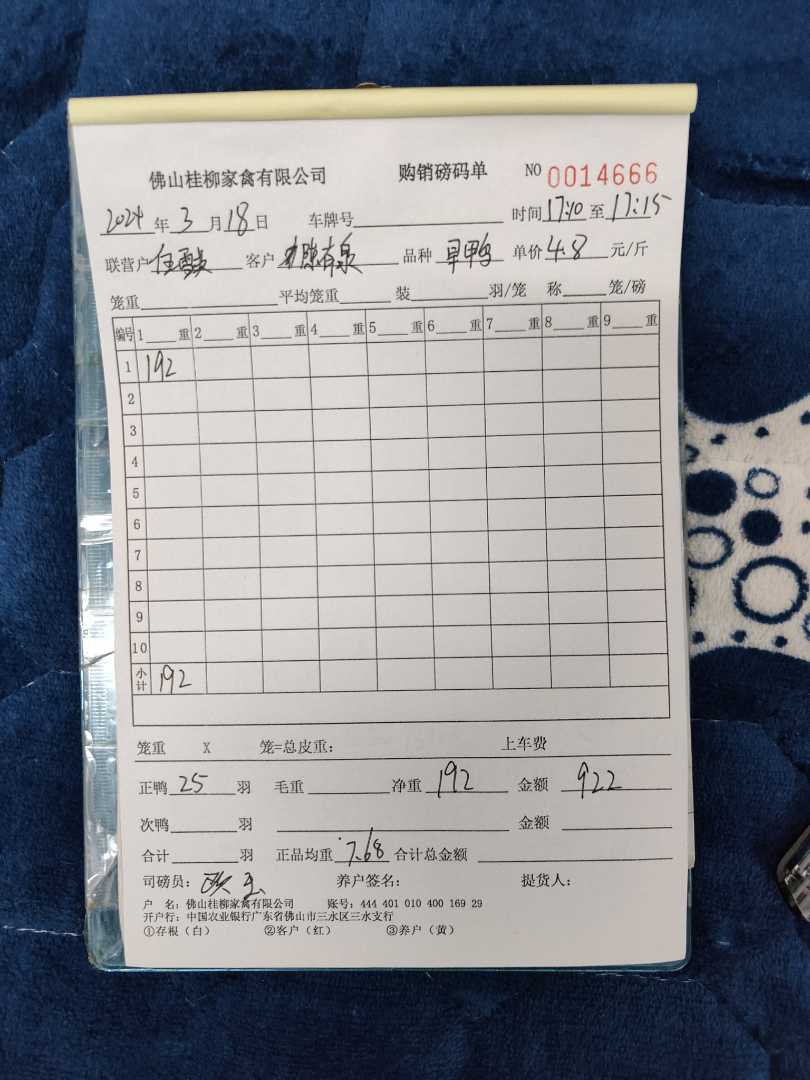 佛山桂柳家禽有限公司 购销磅码单 NO 0014666
2024年3月18日 车牌号 时间17:10至17:15
联营户 客户 品种 旱鸭 单价4.8元/斤
笼重 平均笼重 装 羽/笼 称 笼/磅
编号 1 重 2 重 3 重 4 重 5 重 6 重 7 重 8 重 9 重
1 192
2
3
4
5
6
7
8
9
10
小计 192
笼重 X 笼=总皮重: 上车费
正鸭 25 羽 毛重 净重 192 金额 922
次鸭 羽 金额
合计 羽 正品均重 7.68 合计总金额
司磅员: 养户签名: 提货人:
户 名: 佛山桂柳家禽有限公司 账号: 444 401 010 400 169 29
开户行: 中国农业银行广东省佛山市三水区三水支行
①存根(白) ②客户(红) ③养户(黄)